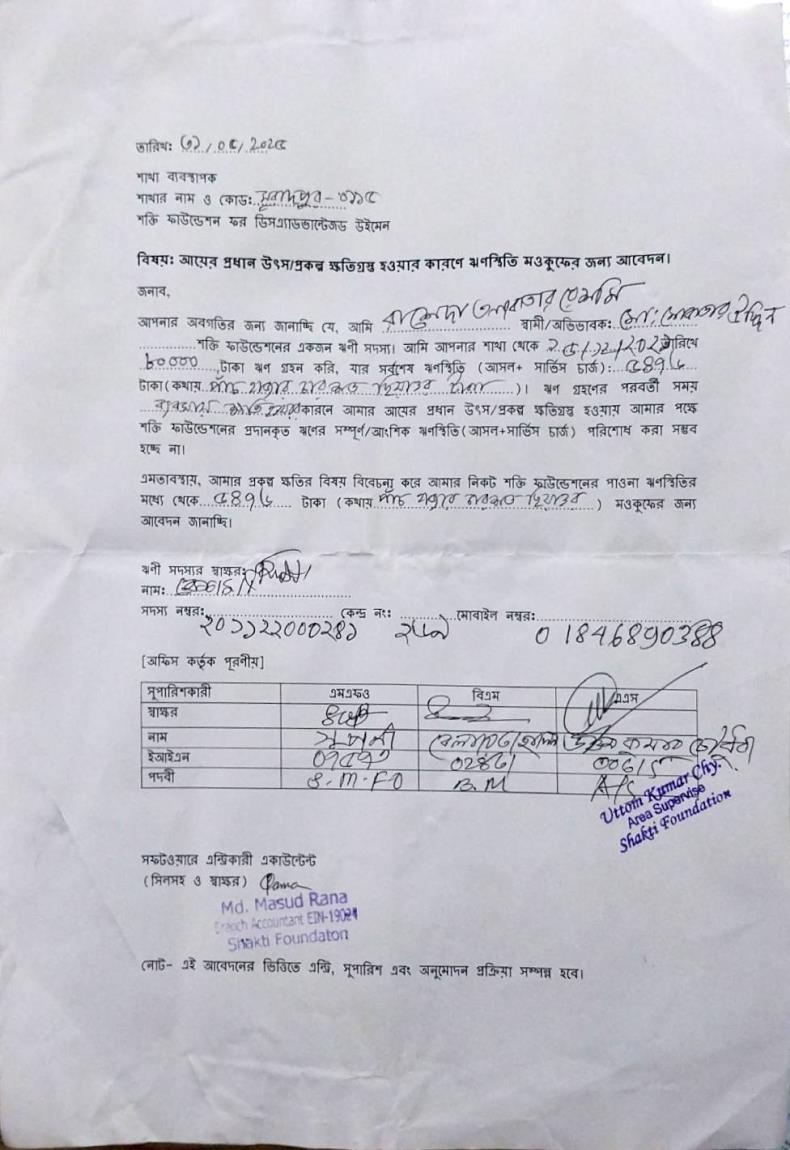 তারিখ: ৩১/০৫/২০২৫
শাখা ব্যবস্থাপক
শাখার নাম ও কোড: মুরাদপুর - ০১১৫
শক্তি ফাউন্ডেশন ফর ডিসএ্যাডভান্টেজড উইমেন
বিষয়: আয়ের প্রধান উৎস/প্রকল্প ক্ষতিগ্রস্ত হওয়ার কারণে ঋণস্থিতি মওকুফের জন্য আবেদন।
জনাব,
আপনার অবগতির জন্য জানাচ্ছি যে, আমি স্বামী/অভিভাবক: মো:
শক্তি ফাউন্ডেশনের একজন ঋণী সদস্য। আমি আপনার শাখা থেকে তারিখে
৮০০০০ টাকা ঋণ গ্রহন করি, যার সর্বশেষ ঋণস্থিতি (আসল+ সার্ভিস চার্জ): ৫৪৭৬
টাকা(কথায় পাঁচ হাজার চারশত ছিয়াত্তর টাকা)। ঋণ গ্রহণের পরবর্তী সময়
কারনে আমার আয়ের প্রধান উৎস/প্রকল্প ক্ষতিগ্রস্ত হওয়ায় আমার পক্ষে
শক্তি ফাউন্ডেশনের প্রদানকৃত ঋণের সম্পূর্ণ/আংশিক ঋণস্থিতি(আসল+সার্ভিস চার্জ) পরিশোধ করা সম্ভব
হচ্ছে না।
এমতাবস্থায়, আমার প্রকল্প ক্ষতির বিষয় বিবেচনা করে আমার নিকট শক্তি ফাউন্ডেশনের পাওনা ঋণস্থিতির
মধ্যে থেকে ৫৪৭৬ টাকা (কথায় পাঁচ হাজার চারশত ছিয়াত্তর) মওকুফের জন্য
আবেদন জানাচ্ছি।
ঋণী সদস্যর স্বাক্ষর:
নাম:
সদস্য নম্বর: কেন্দ্র নং: মোবাইল নম্বর:
01846890388
[অফিস কর্তৃক পূরনীয়]
সুপারিশকারী এমএফও বিএম এএস
স্বাক্ষর
নাম উত্তম কুমার চৌধুরী
ইআইএন 00615
পদবী S.M.FO B.M A/S
Uttom Kumar Chy.
Area Supervise
Shakti Foundation
সফটওয়ারে এন্ট্রিকারী একাউন্টেন্ট
(সিলসহ ও স্বাক্ষর) Rana
Md. Masud Rana
Branch Accountant EIN-19024
Shakti Foundaton
নোট- এই আবেদনের ভিত্তিতে এন্ট্রি, সুপারিশ এবং অনুমোদন প্রক্রিয়া সম্পন্ন হবে।